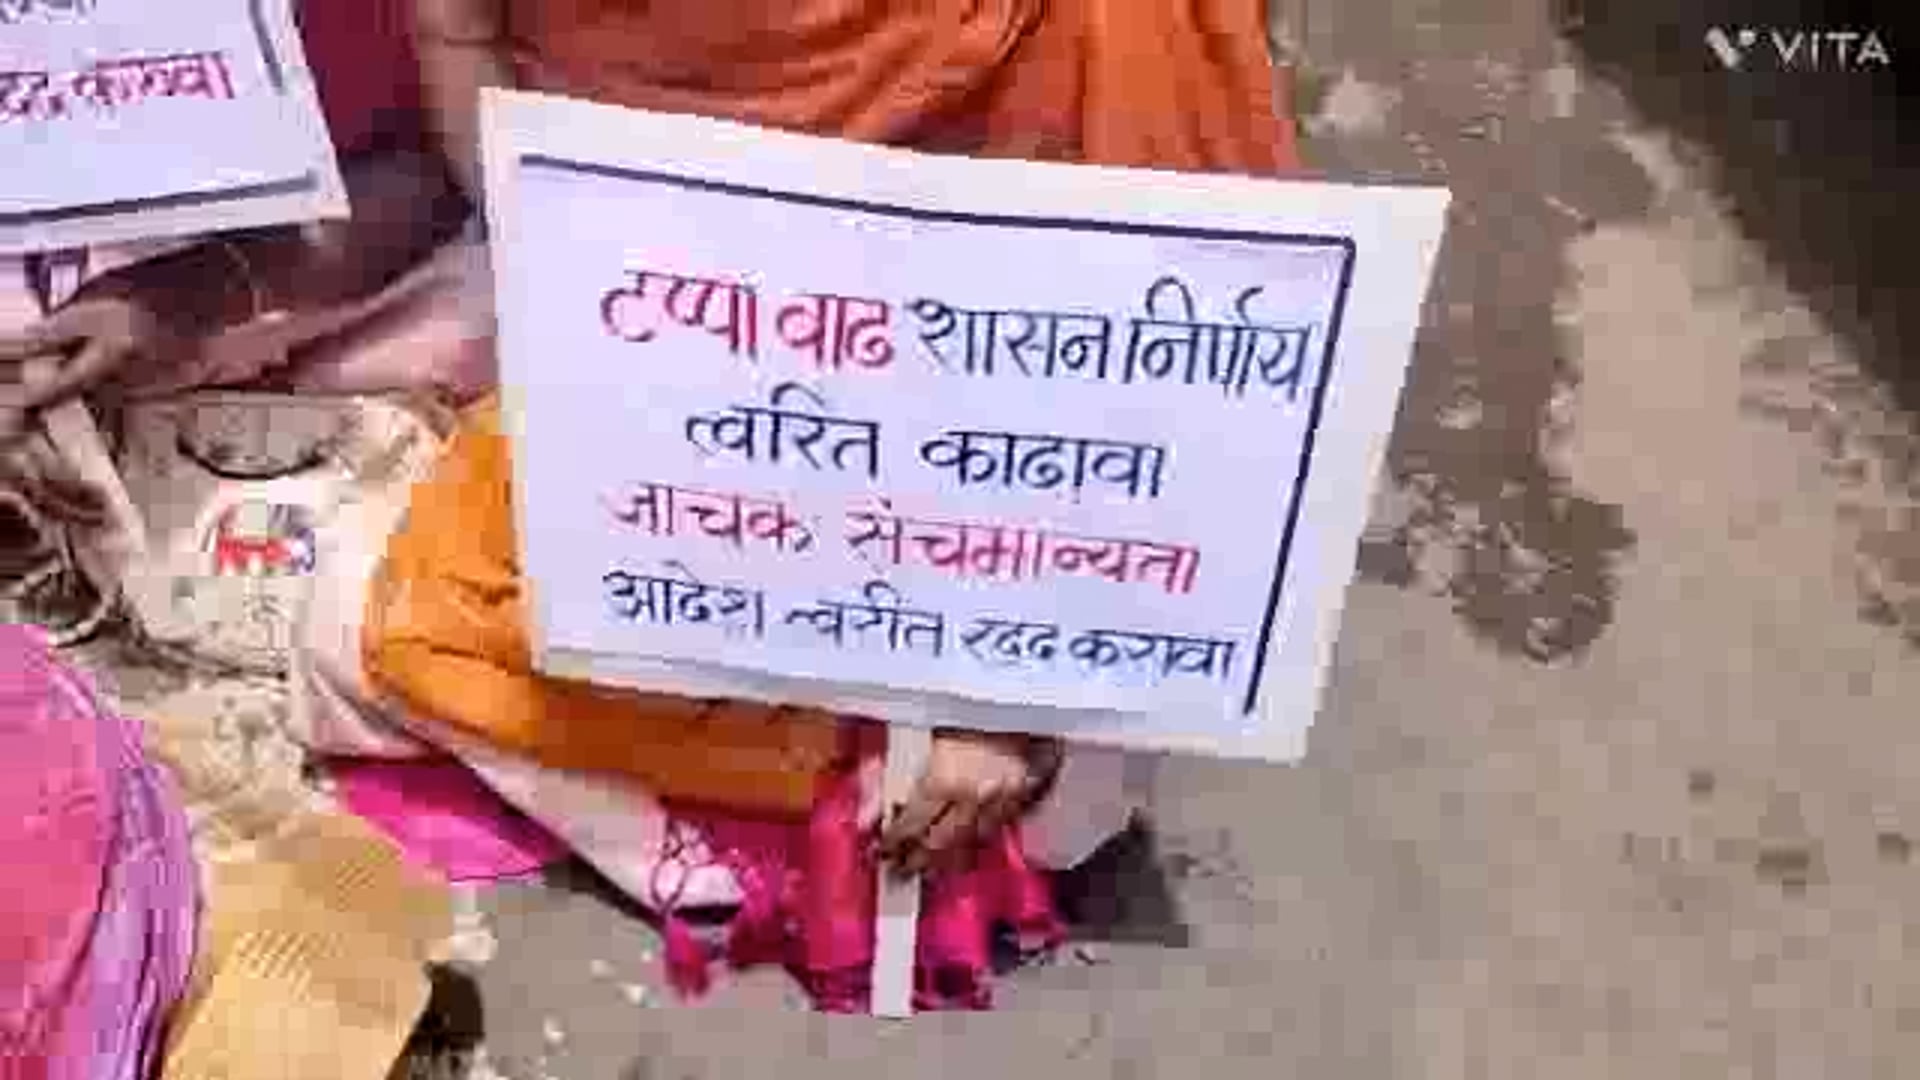 रदद करावा
टप्पा वाढ शासन निर्णय
त्वरित काढावा
जाचक संचमान्यता
आदेश त्वरीत रदद करावा
VITA